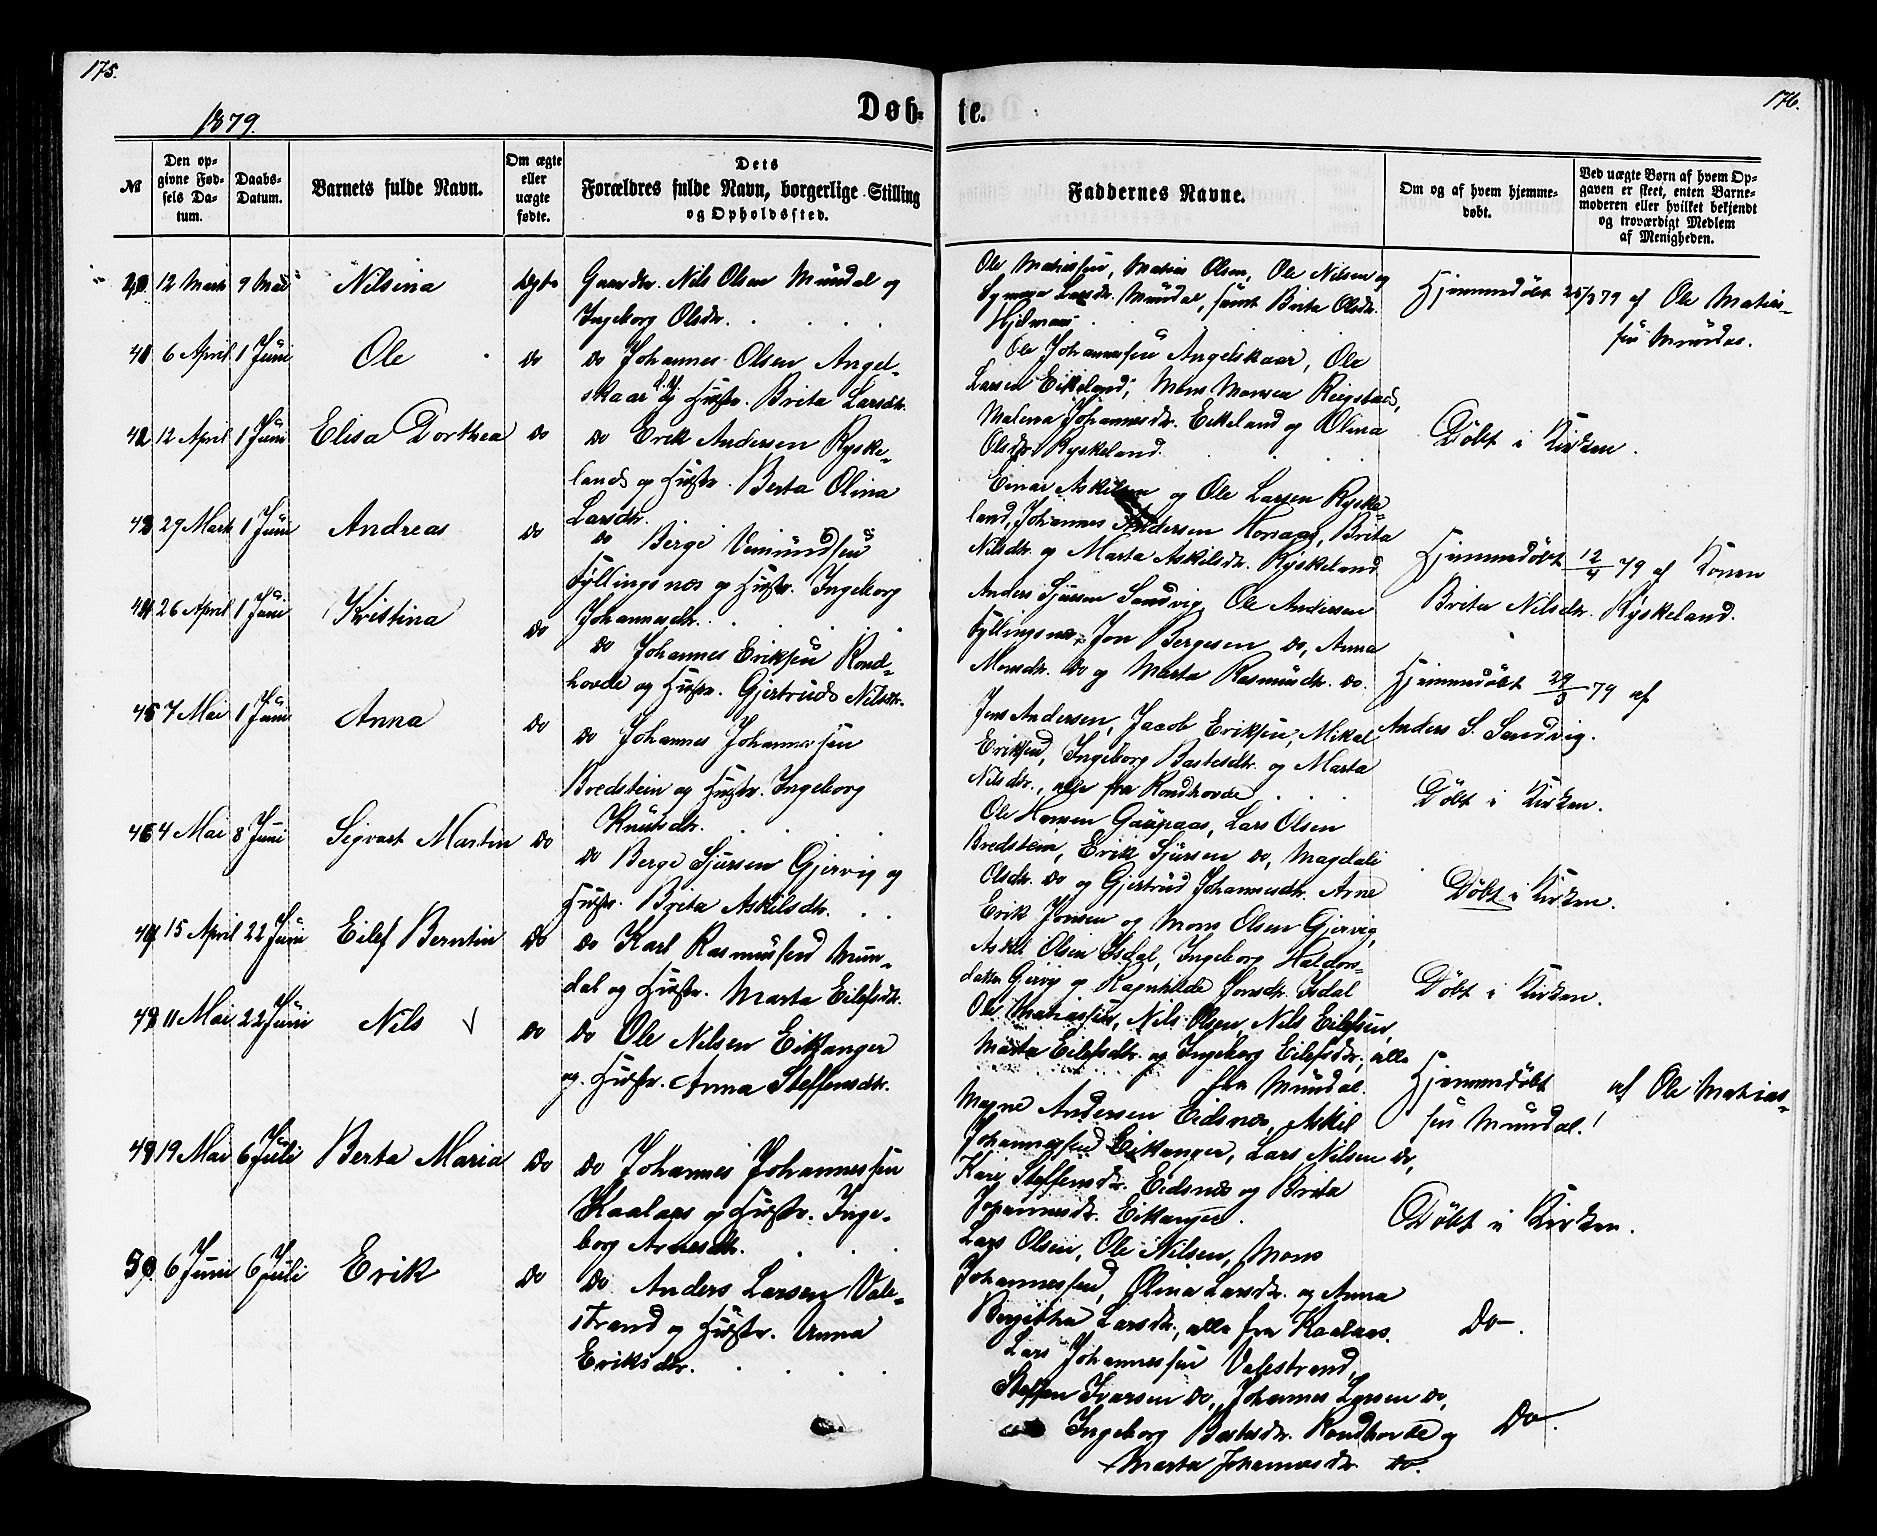 175.
176.
1879.
Døb-
te.
№
Den op-
givne Fød-
sels Da-
tum.
Daabs-
Datum.
Barnets fulde Navn.
Om ægte
eller
uægte
fødte.
Dets
Forældres fulde Navn, borgerlige Stilling
og Opholdssted.
Faddernes Navne.
Om og af hvem hjemme-
døbt.
Ved uægte Børn af hvem Op-
gaven er skeet, enten Barne-
moderen eller hvilket bekjendt
og troværdigt Medlem
af Menigheden.
12 Marts 9 Mai Nilsina Ægte Gaardbr. Nils Olsen Mundal og
Ingeborg Olsdtr.
Ole Mathissen, Matias Olsen, Ole Nilsen og
Larsdtr. Mundal, samt Brita Olsdtr.
Hjelmaas
Hjemmedøbt 25/3 79 af Ole Matias-
sen Mundal.
6 April 1 Juni Ole do do Johannes Olsen Angel-
skaar og Hustr. Brita Larsdtr.
Ole Johannessen Angelskaar, Ole
Larsen Eikeland, Mons Monsen Rugstad,
Malena Johannesdtr. Eikeland og Olina
Olsdtr. Ryskeland.
Døbt i Kirken.
12 April 1 Juni Elisa Dorthea do do Erik Andersen Ryske-
land og Hustr. Berta Olina
Larsdtr.
Einar Askilsen og Ole Larsen Ryske-
land, Johannes Andersen Honaas, Brita
Nilsdtr. og Marta Askilsdtr. Ryskeland
Hjemmedøbt 12/4 79 af Konen
Brita Nilsdtr. Ryskeland.
29 Marts 1 Juni Andreas do do Berge Vemundsen
Fyllingsnes og Hustr. Ingeborg
Johannesdtr.
Anders Sjursen Sandvig, Ole Andersen
Fyllingsnes, Jon Bergesen do, Anna
Monsdtr. do og Marta Rasmusdtr. do.
Hjemmedøbt 29/3 79 af
Anders S. Sandvig.
26 April 1 Juni Kristina do do Johannes Eriksen Rond-
hovde og Hustr. Gjertrud Nilsdtr.
Jens Andersen, Jacob Eriksen, Mikal
Eriksen, Ingeborg Bastesdtr. og Marta
Nilsdtr., alle fra Rondhovde
Døbt i Kirken.
7 Mai 1 Juni Anna do do Johannes Johannessen
Bredstein og Hustr. Ingeborg
Knutsdtr.
Ole Hansen Gaupaas, Lars Olsen
Bredstein, Erik Sjursen do, Magdali
Olsdtr. do og Gjertrud Johannesdtr. Arne
Døbt i Kirken.
4 Mai 8 Juni Sigvart Martin do do Berge Sjursen Gjervig og
Hustr. Brita Askilsdtr.
Erik Jonsen og Mons Olsen Gjervig,
Askil Olsen Isdal, Ingeborg Haldors-
datter Gjervig og Ragnhilde Jonsdtr. Isdal
Døbt i Kirken.
15 April 22 Juni Eilef Berntin do do Karl Rasmussen Mun-
dal og Hustr. Marta Eilefsdtr.
Ole Matiassen, Nils Olsen, Nils Eilefsen,
Marta Eilefsdtr. og Ingeborg Eilefsdtr., alle
fra Mundal.
Hjemmedøbt af Ole Matias-
sen Mundal!
11 Mai 22 Juni Nils do do Ole Nilsen Eikanger
og Hustr. Anna Steffensdtr.
Magne Andersen Eidsnes, Askil
Johannessen Eikanger, Lars Nilsen do,
Kari Steffensdtr. Eidsnes og Brita
Johannesdtr. Eikanger.
Døbt i Kirken.
19 Mai 6 Juli Berta Maria do do Johannes Johannessen
Kaalaas og Hustr. Inge-
borg Arnesdtr.
Lars Olsen, Ole Nilsen, Mons
Johannessen, Olina Larsdtr. og Anna
Bergitha Larsdtr., alle fra Kaalaas.
Do.
50 6 Juni 6 Juli Erik do do Anders Larsen Vale-
strand og Hustr. Anna
Eriksdtr.
Lars Johannessen Valestrand,
Steffen Ivarsen do, Johannes Larsen do,
Ingeborg Bastesdtr. Rondhovde og
Marta Johannesdtr. do.
Do.